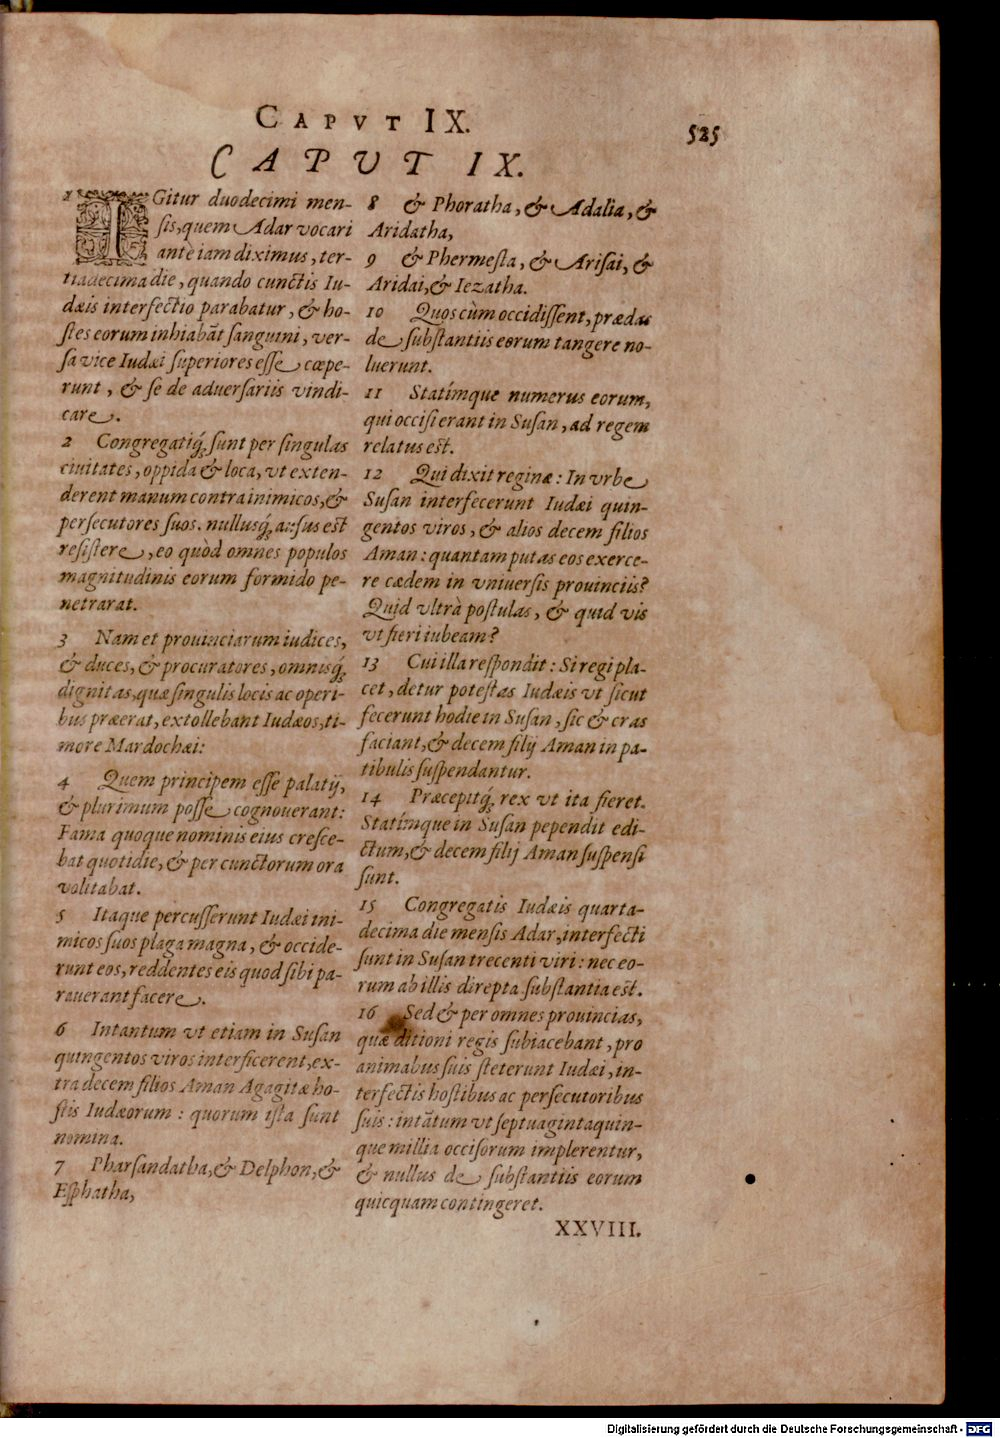 CAPVT IX.
525
CAPUT IX.
1 IGitur duodecimi men-
sis, quem Adar vocari
antè iam diximus, ter-
tiadecima die, quando cunctis Iu-
dæis interfectio parabatur, & ho-
stes eorum inhiabāt sanguini, ver-
sa vice Iudæi superiores esse cœpe-
runt, & se de aduersariis vindi-
care.
2 Congregatiq́; sunt per singulas
ciuitates, oppida & loca, vt exten-
derent manum contra inimicos, &
persecutores suos. nullusq́; ausus est
resistere, eo quòd omnes populos
magnitudinis eorum formido pe-
netrarat.
3 Nam et prouinciarum iudices,
& duces, & procuratores, omnisq́;
dignitas, quæ singulis locis ac operi-
bus præerat, extollebant Iudæos, ti-
more Mardochæi:
4 Quem principem esse palatij,
& plurimum posse cognouerant:
Fama quoque nominis eius cresce-
bat quotidie, & per cunctorum ora
volitabat.
5 Itaque percusserunt Iudæi ini-
micos suos plaga magna, & occide-
runt eos, reddentes eis quod sibi pa-
rauerant facere.
6 Intantum vt etiam in Susan
quingentos viros interficerent, ex-
tra decem filios Aman Agagitæ ho-
stis Iudæorum: quorum ista sunt
nomina.
7 Pharsandatha, & Delphon, &
Esphatha,
8 & Phoratha, & Adalia, &
Aridatha,
9 & Phermesta, & Arisai, &
Aridai, & Iezatha.
10 Quos cùm occidissent, prædas
de substantiis eorum tangere no-
luerunt.
11 Statímque numerus eorum,
qui occisi erant in Susan, ad regem
relatus est.
12 Qui dixit reginæ: In vrbe
Susan interfecerunt Iudæi quin-
gentos viros, & alios decem filios
Aman: quantam putas eos exerce-
re cædem in vniuersis prouinciis?
Quid vltrà postulas, & quid vis
vt fieri iubeam?
13 Cui illa respondit: Si regi pla-
cet, detur potestas Iudæis vt sicut
fecerunt hodie in Susan, sic & cras
faciant, & decem filij Aman in pa-
tibulis suspendantur.
14 Præcepitq́; rex vt ita fieret.
Statímque in Susan pependit edi-
ctum, & decem filij Aman suspensi
sunt.
15 Congregatis Iudæis quarta-
decima die mensis Adar, interfecti
sunt in Susan trecenti viri: nec eo-
rum ab illis direpta substantia est.
16 Sed & per omnes prouincias,
quæ ditioni regis subiacebant, pro
animabus suis steterunt Iudæi, in-
terfectis hostibus ac persecutoribus
suis: intātum vt septuagintaquin-
que millia occisorum implerentur,
& nullus de substantiis eorum
quicquam contingeret.
XXVIII.
Digitalisierung gefördert durch die Deutsche Forschungsgemeinschaft - DFG